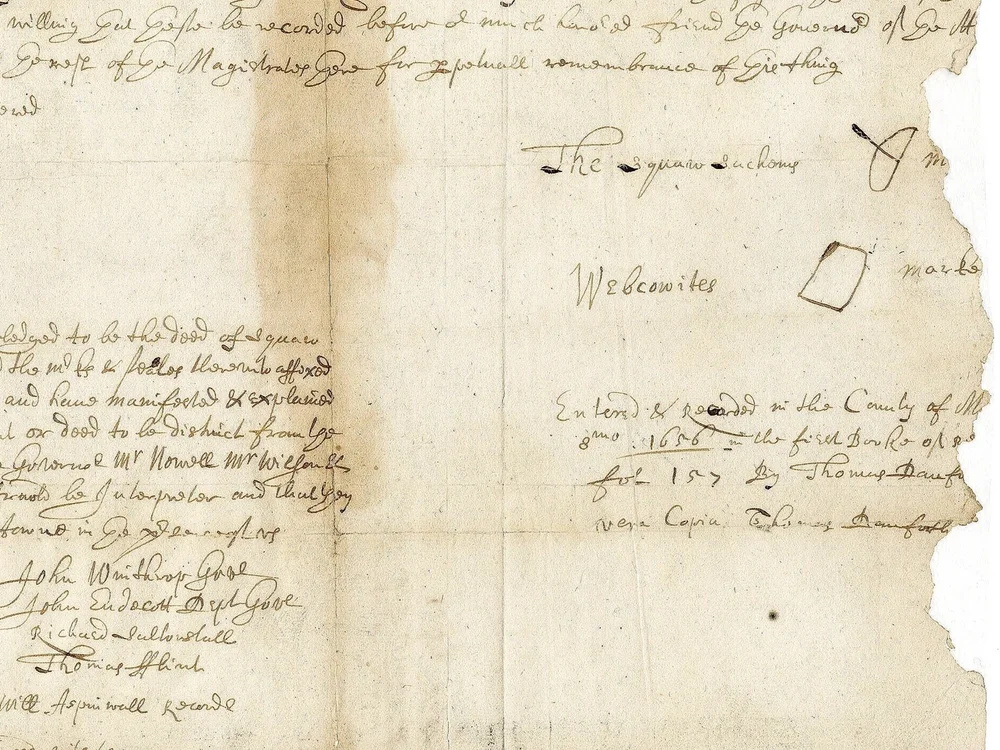 willing that theise be recorded before o much hono'ed friend the Governo' of the
the rest of the Magistrates there for ppetuall remembrance of this thing
The Squaw Sachems
m
Webcowites
marke
ledged to be the deed of Squaw
the mrks & seales thereunto affixed
and haue manifested & explained
or deed to be distinct from the
Governor Mr Nowell Mr Wilson
be Interpreter and that they
towne in the
John Winthrop Gove'
John Endecott Dept Gove'
Richard Saltonstall
Thomas fflint
Will Aspinwall Record'
Entered & Recorded in the County of M
8mo 1656 in the first Booke of
fol 157 By Thomas Danfo
vera Copia Thomas Danforth